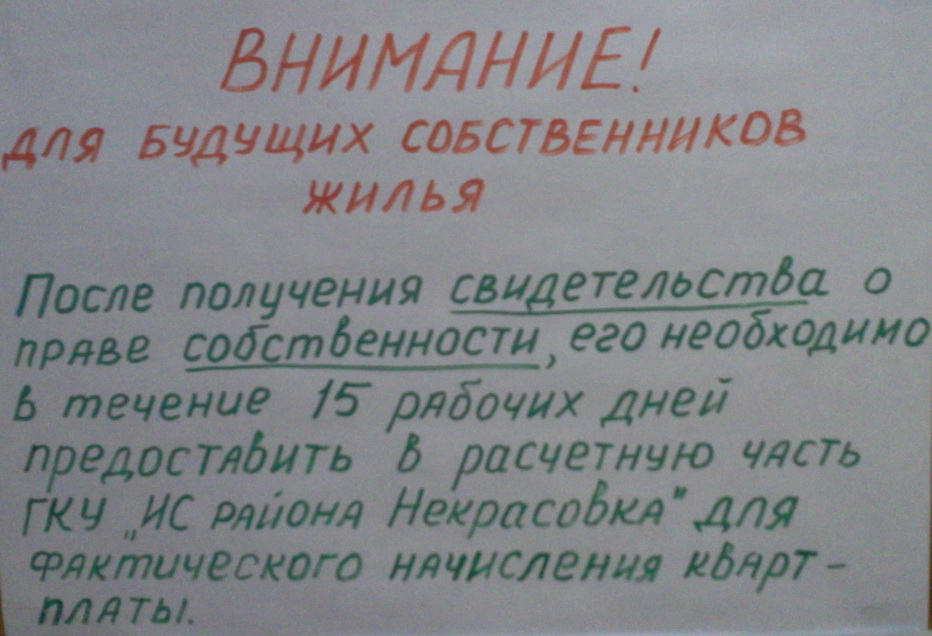 ВНИМАНИЕ!
ДЛЯ БУДУЩИХ СОБСТВЕННИКОВ
ЖИЛЬЯ
После получения свидетельства о
праве собственности, его необходимо
в течение 15 рабочих дней
предоставить в расчетную часть
ГКУ „ИС района Некрасовка" для
фактического начисления кварт-
платы.